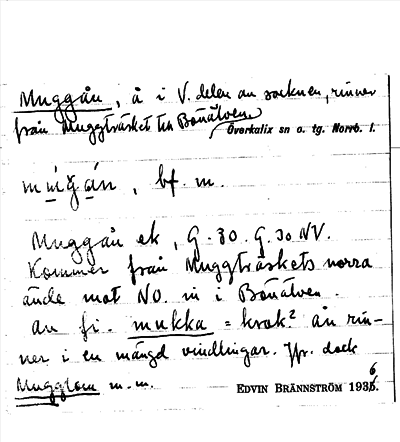 Muggån, å i V. delen av socknen, rinner
från Muggträsket till Bönälven
Överkalix sn o. tg. Norrb. l.
bf. m.
Muggån ek, G. 30. G. 30 NV.
Kommer från Muggträskets norra
ände mot NO. in i Bönälven.
av fi. mukka = krok? ån rin-
ner i en mängd vindlingar. Jfr. dock
Mugglom m.m.
EDVIN BRÄNNSTRÖM 1936.